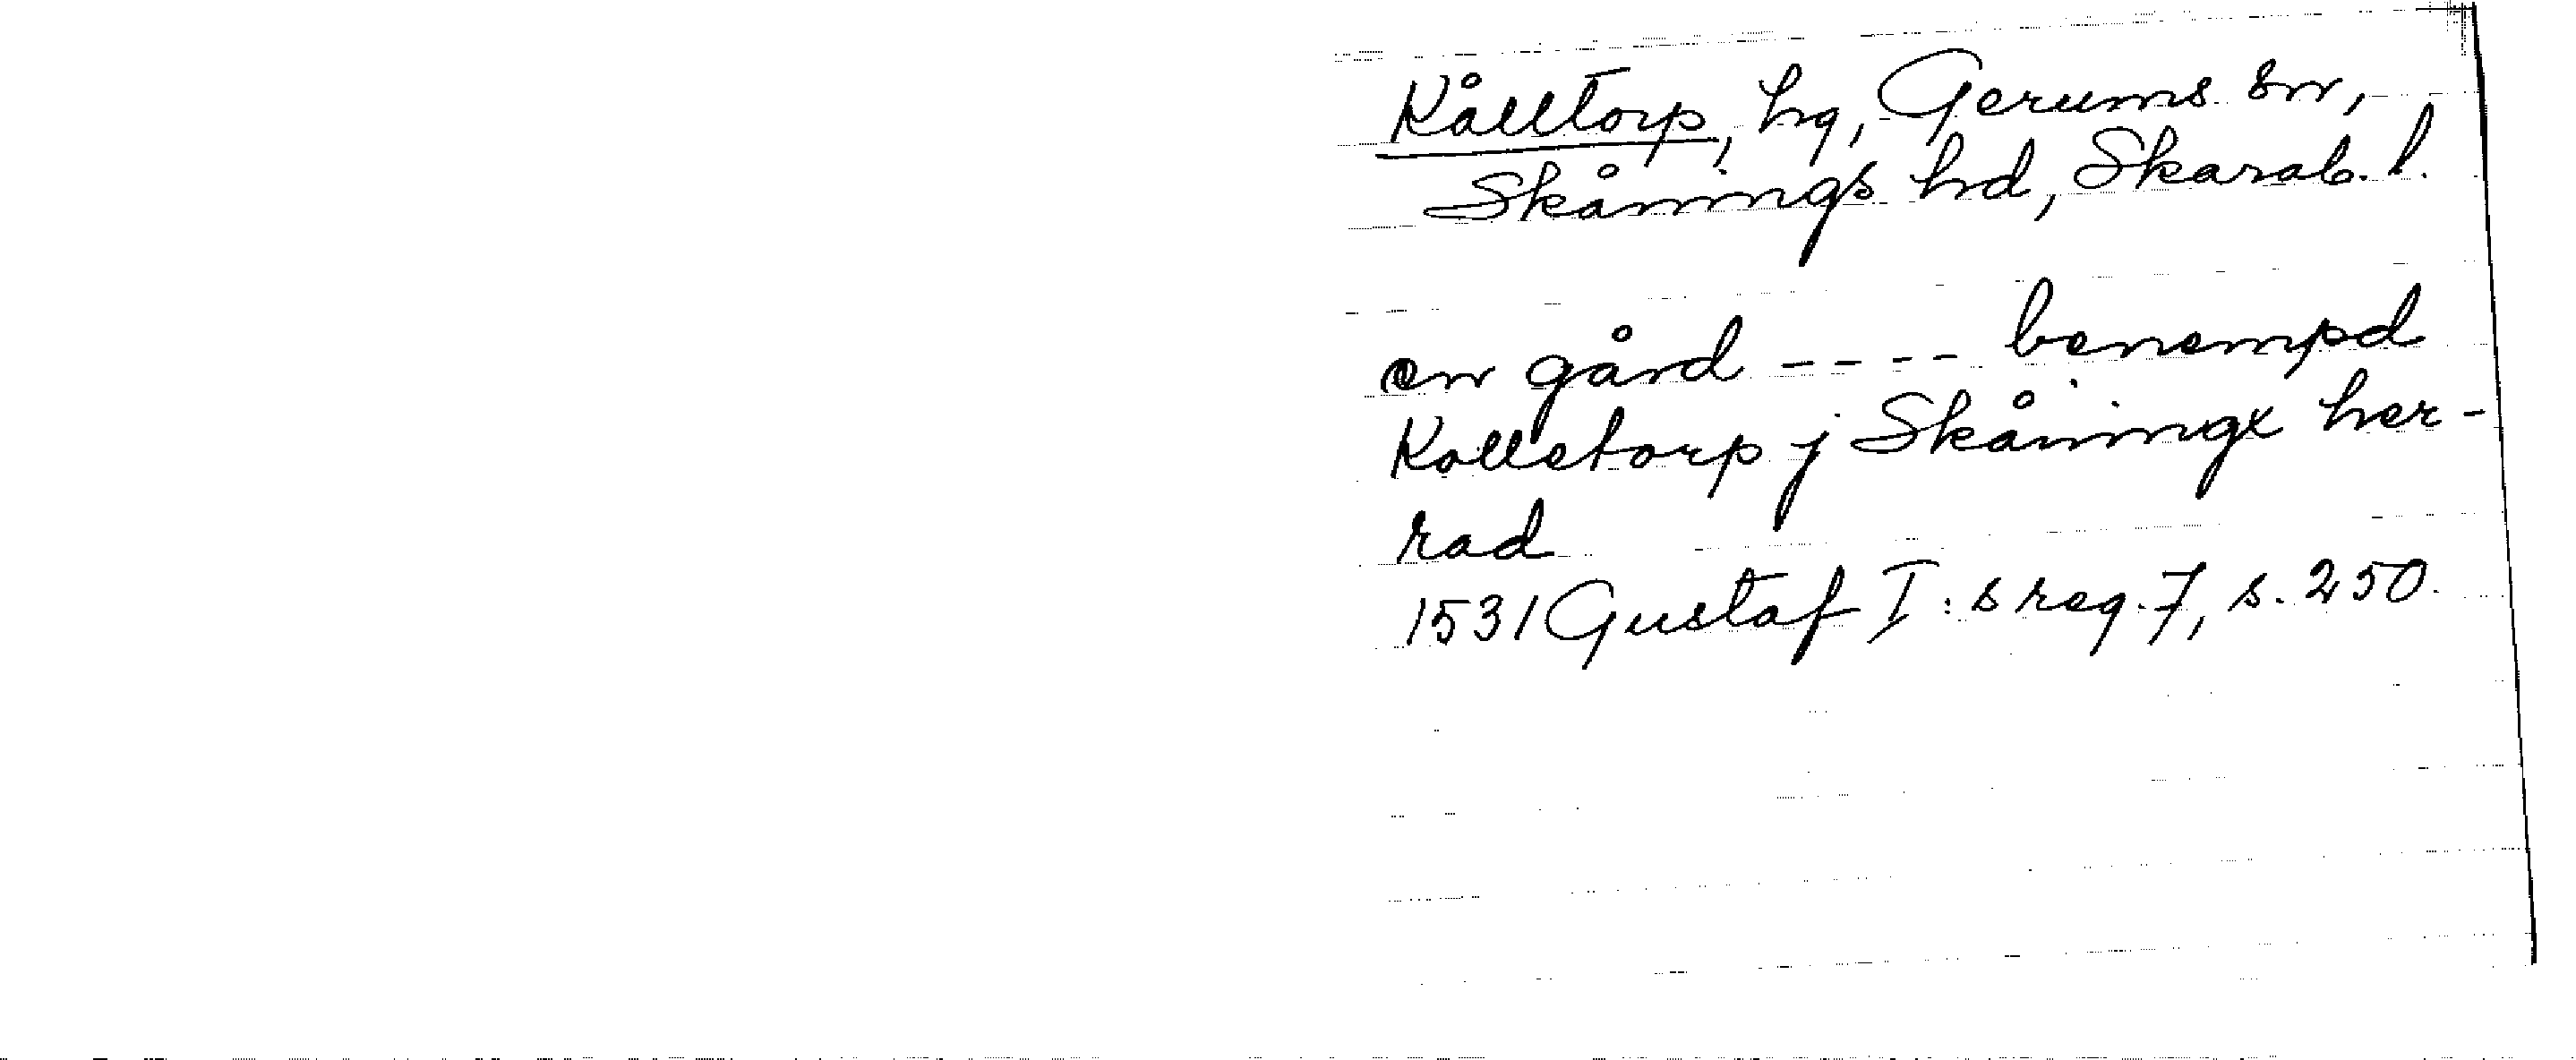 Kålltorp, hg, Gerums sn,
Skånings hd, Skarab. l.
en gård ---- benempd
Kolletorp j Skåningx her-
rad
1531 Gustaf I:s reg. 7, s. 250.